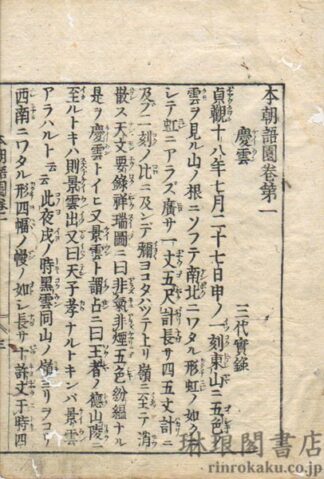 本朝語園卷第一
慶雲
三代實錄
貞觀十八年七月二十七日申ノ一刻東山ニ五色ノ
雲ヲ見ル山ノ根ニソフテ南北ニワタル形虹ノ如クニ
シテ虹ニアラズ廣サ一丈五尺計長サ四五丈計ニ
及ブ二刻ノ比ニ及ンデ彌ヨコタハツテ上リ嶺ニ至テ消
散ス天文要錄祥瑞圖ニ曰非氣非煙五色紛縕タル
是ヲ慶雲トイヒ又景雲ト謂占ニ曰王者ノ德山陵ニ
至ルトキハ則景雲出又曰天子孝ナルトキンバ景雲
アラハルト云云此夜戌ノ時黑雲同山ノ嶺ヨリヲコリ
西南ニワタル形四幅ノ幔ノ如シ長サ十許丈于時四
本朝語園卷一
琳琅閣書店
rinrokaku.co.jp